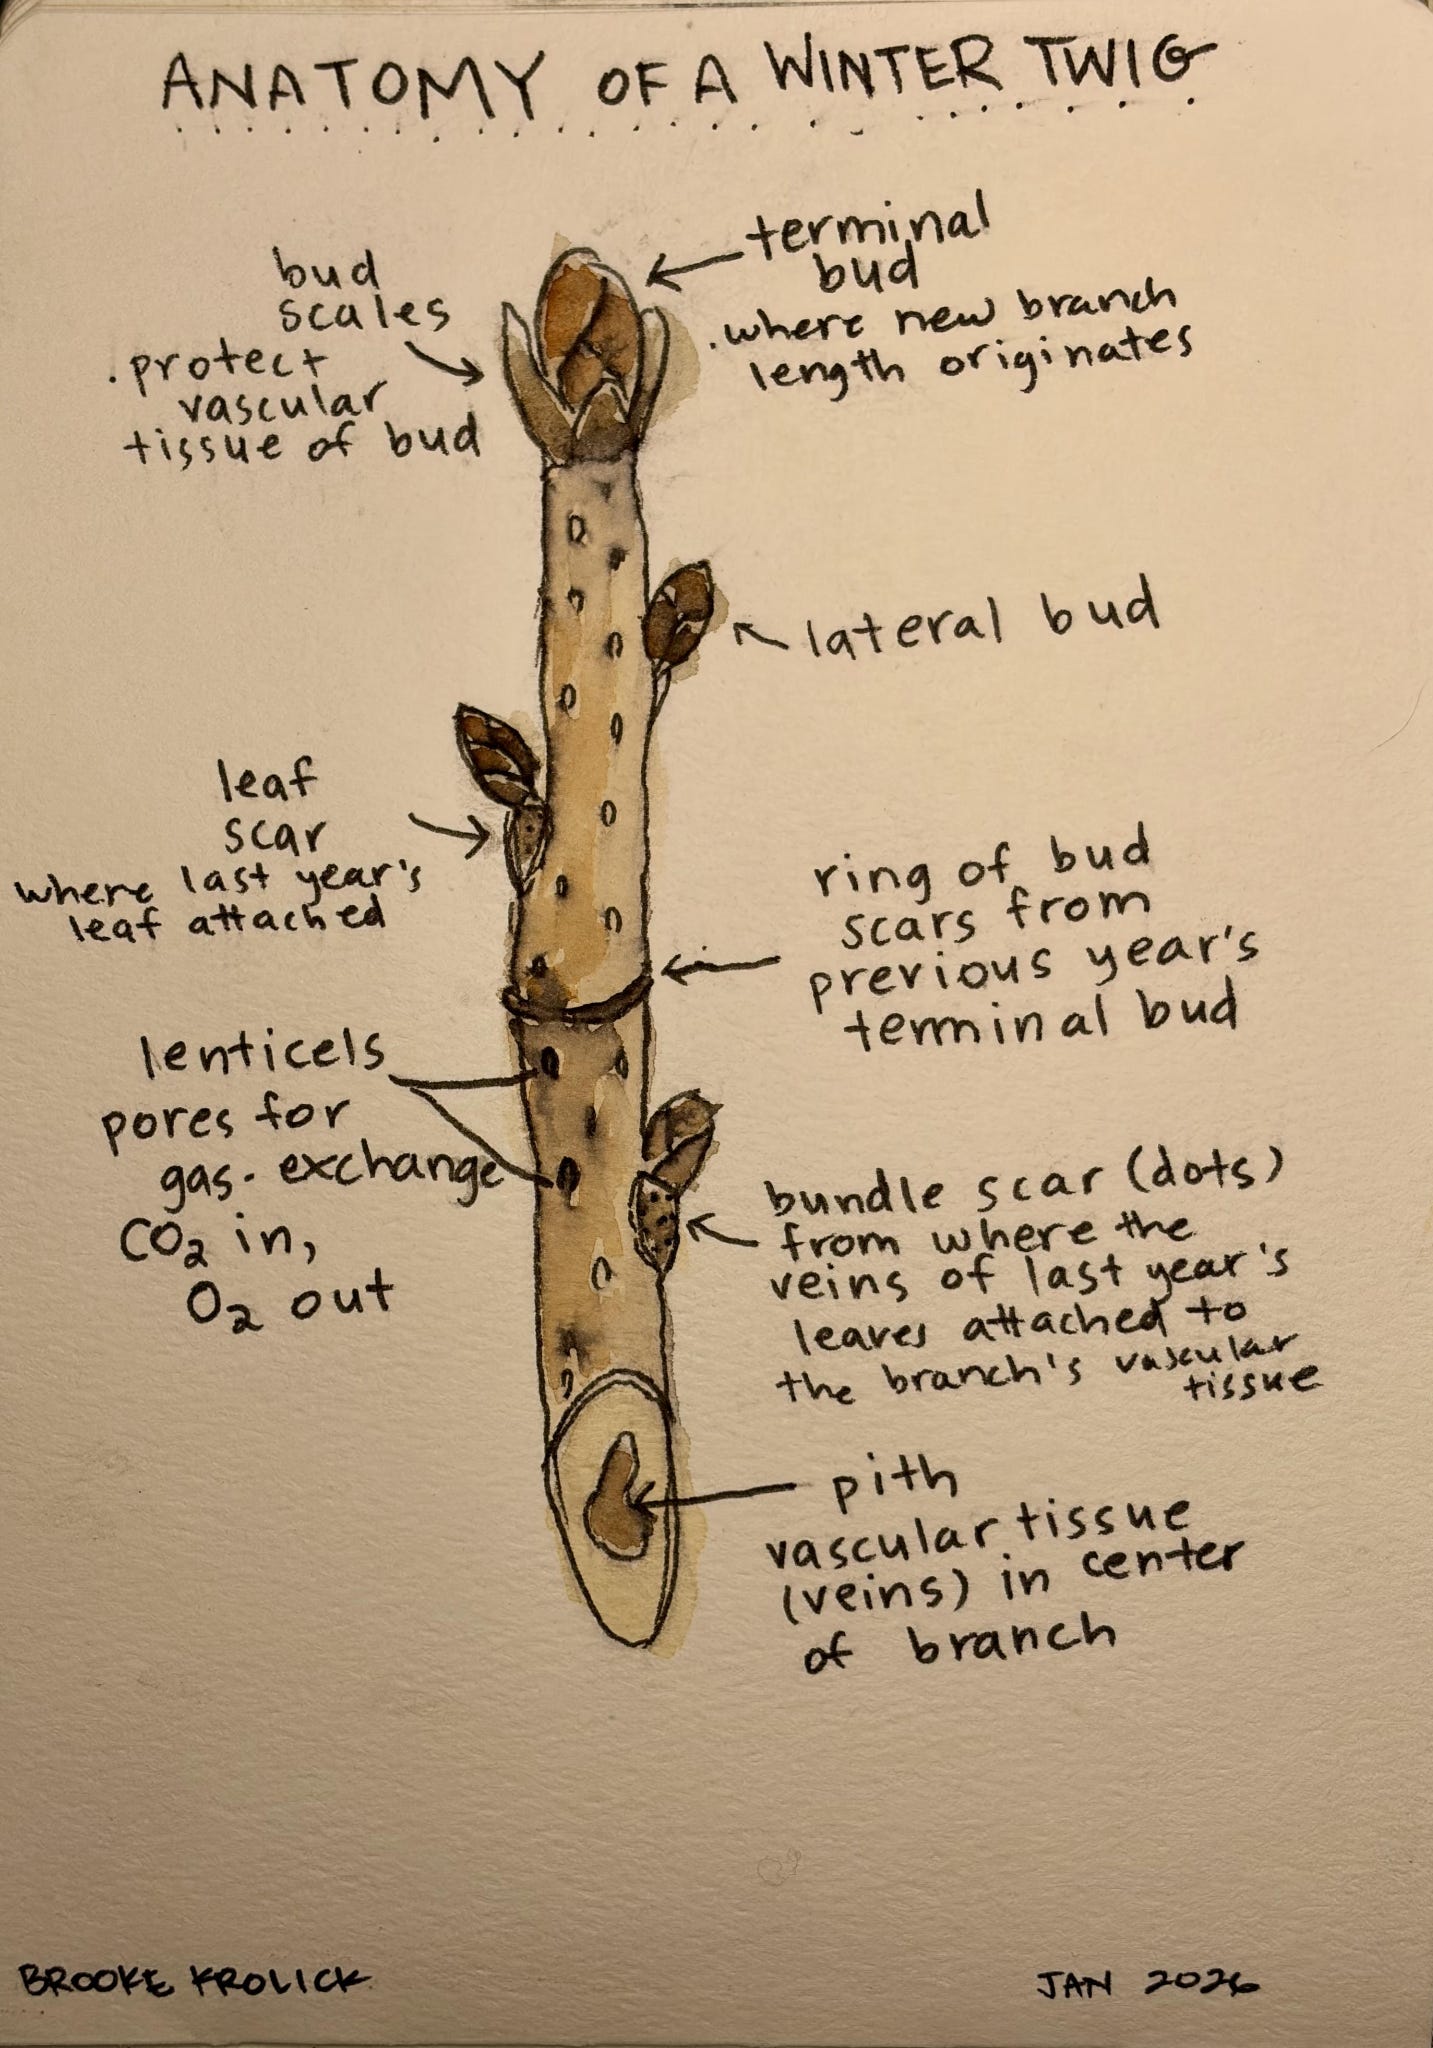 ANATOMY OF A WINTER TWIG
bud
scales
. protect
vascular
tissue of bud
terminal
bud
. where new branch
length originates
lateral bud
leaf
scar
where last year's
leaf attached
ring of bud
scars from
previous year's
terminal bud
lenticels
pores for
gas. exchange
CO₂ in,
O₂ out
bundle scar (dots)
from where the
veins of last year's
leaves attached to
the branch's vascular
tissue
pith
vascular tissue
(veins) in center
of branch
BROOKE KROLICK
JAN 2026